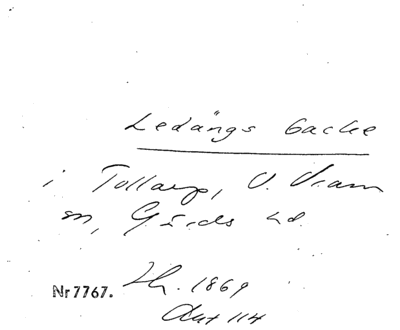 Ledängs backe
i Tollarp, V. Vram
sn, Gärds hd.
Nr 7767. 1869
114